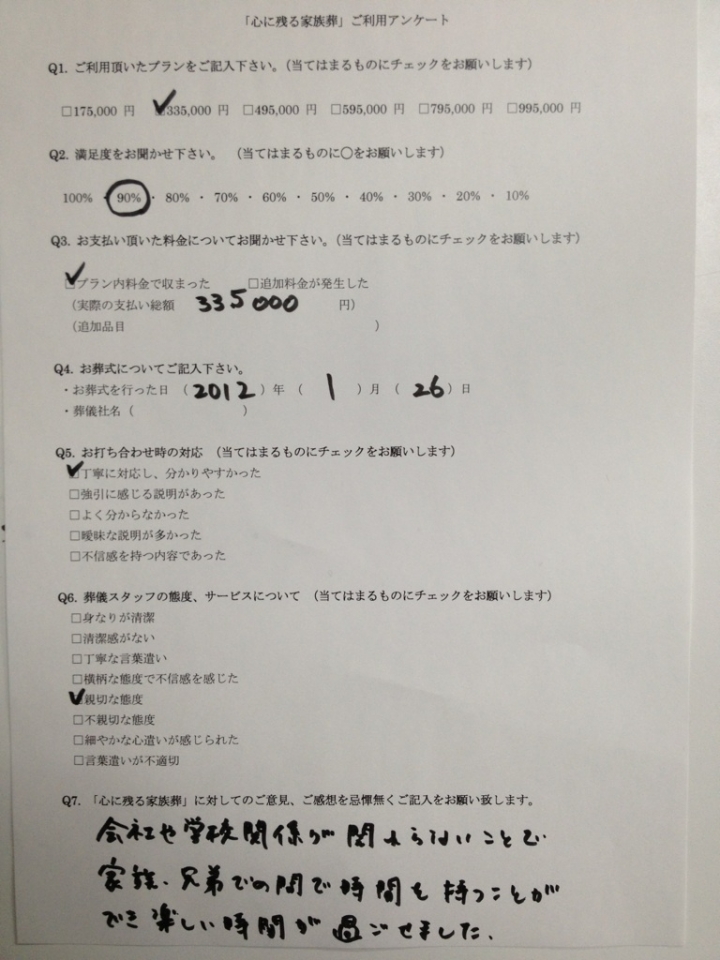 「心に残る家族葬」ご利用アンケート
Q1. ご利用頂いたプランをご記入下さい。(当てはまるものにチェックをお願いします)
□175,000 円 ☑335,000 円 □495,000 円 □595,000 円 □795,000 円 □995,000 円
Q2. 満足度をお聞かせ下さい。 (当てはまるものに〇をお願いします)
100% ・ 90% ・ 80% ・ 70% ・ 60% ・ 50% ・ 40% ・ 30% ・ 20% ・ 10%
Q3. お支払い頂いた料金についてお聞かせ下さい。(当てはまるものにチェックをお願いします)
☑プラン内料金で収まった □追加料金が発生した
(実際の支払い総額 335000 円)
(追加品目 )
Q4. お葬式についてご記入下さい。
・お葬式を行った日 (2012)年 ( 1 )月 ( 26 )日
・葬儀社名 ( )
Q5. お打ち合わせ時の対応 (当てはまるものにチェックをお願いします)
☑丁寧に対応し、分かりやすかった
□強引に感じる説明があった
□よく分からなかった
□曖昧な説明が多かった
□不信感を持つ内容であった
Q6. 葬儀スタッフの態度、サービスについて (当てはまるものにチェックをお願いします)
□身なりが清潔
□清潔感がない
□丁寧な言葉遣い
□横柄な態度で不信感を感じた
☑親切な態度
□不親切な態度
□細やかな心遣いが感じられた
□言葉遣いが不適切
Q7. 「心に残る家族葬」に対してのご意見、ご感想を忌憚無くご記入をお願い致します。
会社や学校関係が関わらないことで
家族、兄弟での間で時間も持つことが
でき楽しい時間が過ごせました.